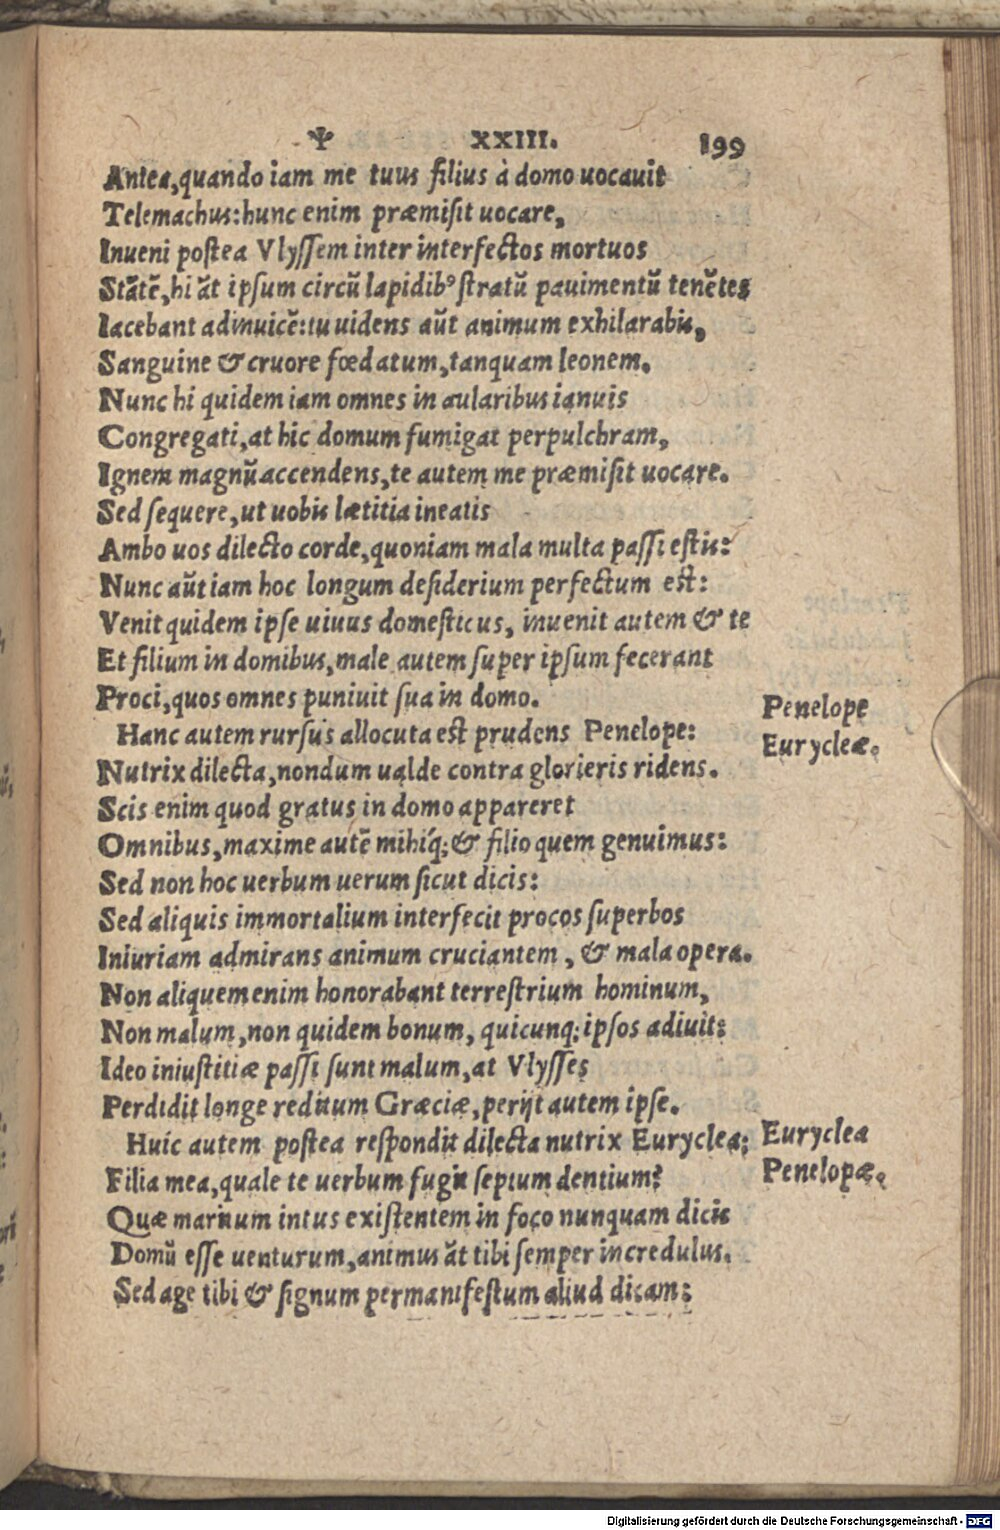 XXIII. 199
Antea,quando iam me tuus filius à domo uocauit
Telemachus:hunc enim præmiſit uocare,
Inueni poſtea Vlyſſem inter interfectos mortuos
Stãtẽ,hi ãt ipſum circũ lapidibꝰ ſtratũ pauimentũ tenẽtes
Iacebant adinuicẽ:tu uidens aũt animum exhilarabis,
Sanguine & cruore fœdatum,tanquam leonem.
Nunc hi quidem iam omnes in aularibus ianuis
Congregati,at hic domum fumigat perpulchram,
Ignem magnũ accendens,te autem me præmiſit uocare.
Sed ſequere,ut uobis lætitia ineatis
Ambo uos dilecto corde,quoniam mala multa paſſi eſtis:
Nunc aũt iam hoc longum deſiderium perfectum eſt:
Venit quidem ipſe uiuus domeſticus, inuenit autem & te
Et filium in domibus,male autem ſuper ipſum fecerant
Proci,quos omnes puniuit ſua in domo.
Hanc autem rurſus allocuta eſt prudens Penelope:
Penelope
Eurycleæ.
Nutrix dilecta,nondum ualde contra glorieris ridens.
Scis enim quod gratus in domo appareret
Omnibus,maxime autẽ mihiq́;& filio quem genuimus:
Sed non hoc uerbum uerum ſicut dicis:
Sed aliquis immortalium interfecit procos ſuperbos
Iniuriam admirans animum cruciantem, & mala opera.
Non aliquem enim honorabant terreſtrium hominum,
Non malum,non quidem bonum, quicunq; ipſos adiuit:
Ideo iniuſtitiæ paſſi ſunt malum,at Vlyſſes
Perdidit longe reditum Græciæ,perijt autem ipſe.
Huic autem poſtea reſpondit dilecta nutrix Euryclea:
Euryclea
Penelopæ.
Filia mea,quale te uerbum fugit ſeptum dentium?
Quæ maritum intus exiſtentem in foco nunquam dicis
Domũ eſſe uenturum,animus ãt tibi ſemper incredulus.
Sed age tibi & ſignum permanifeſtum aliud dicam:
Digitalisierung gefördert durch die Deutsche Forschungsgemeinschaft - DFG